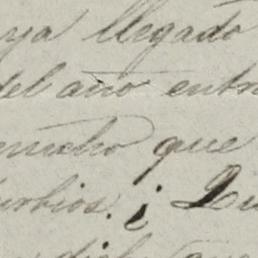 ya llegado
del año entr
mucho que
urbios. ¿ Qu